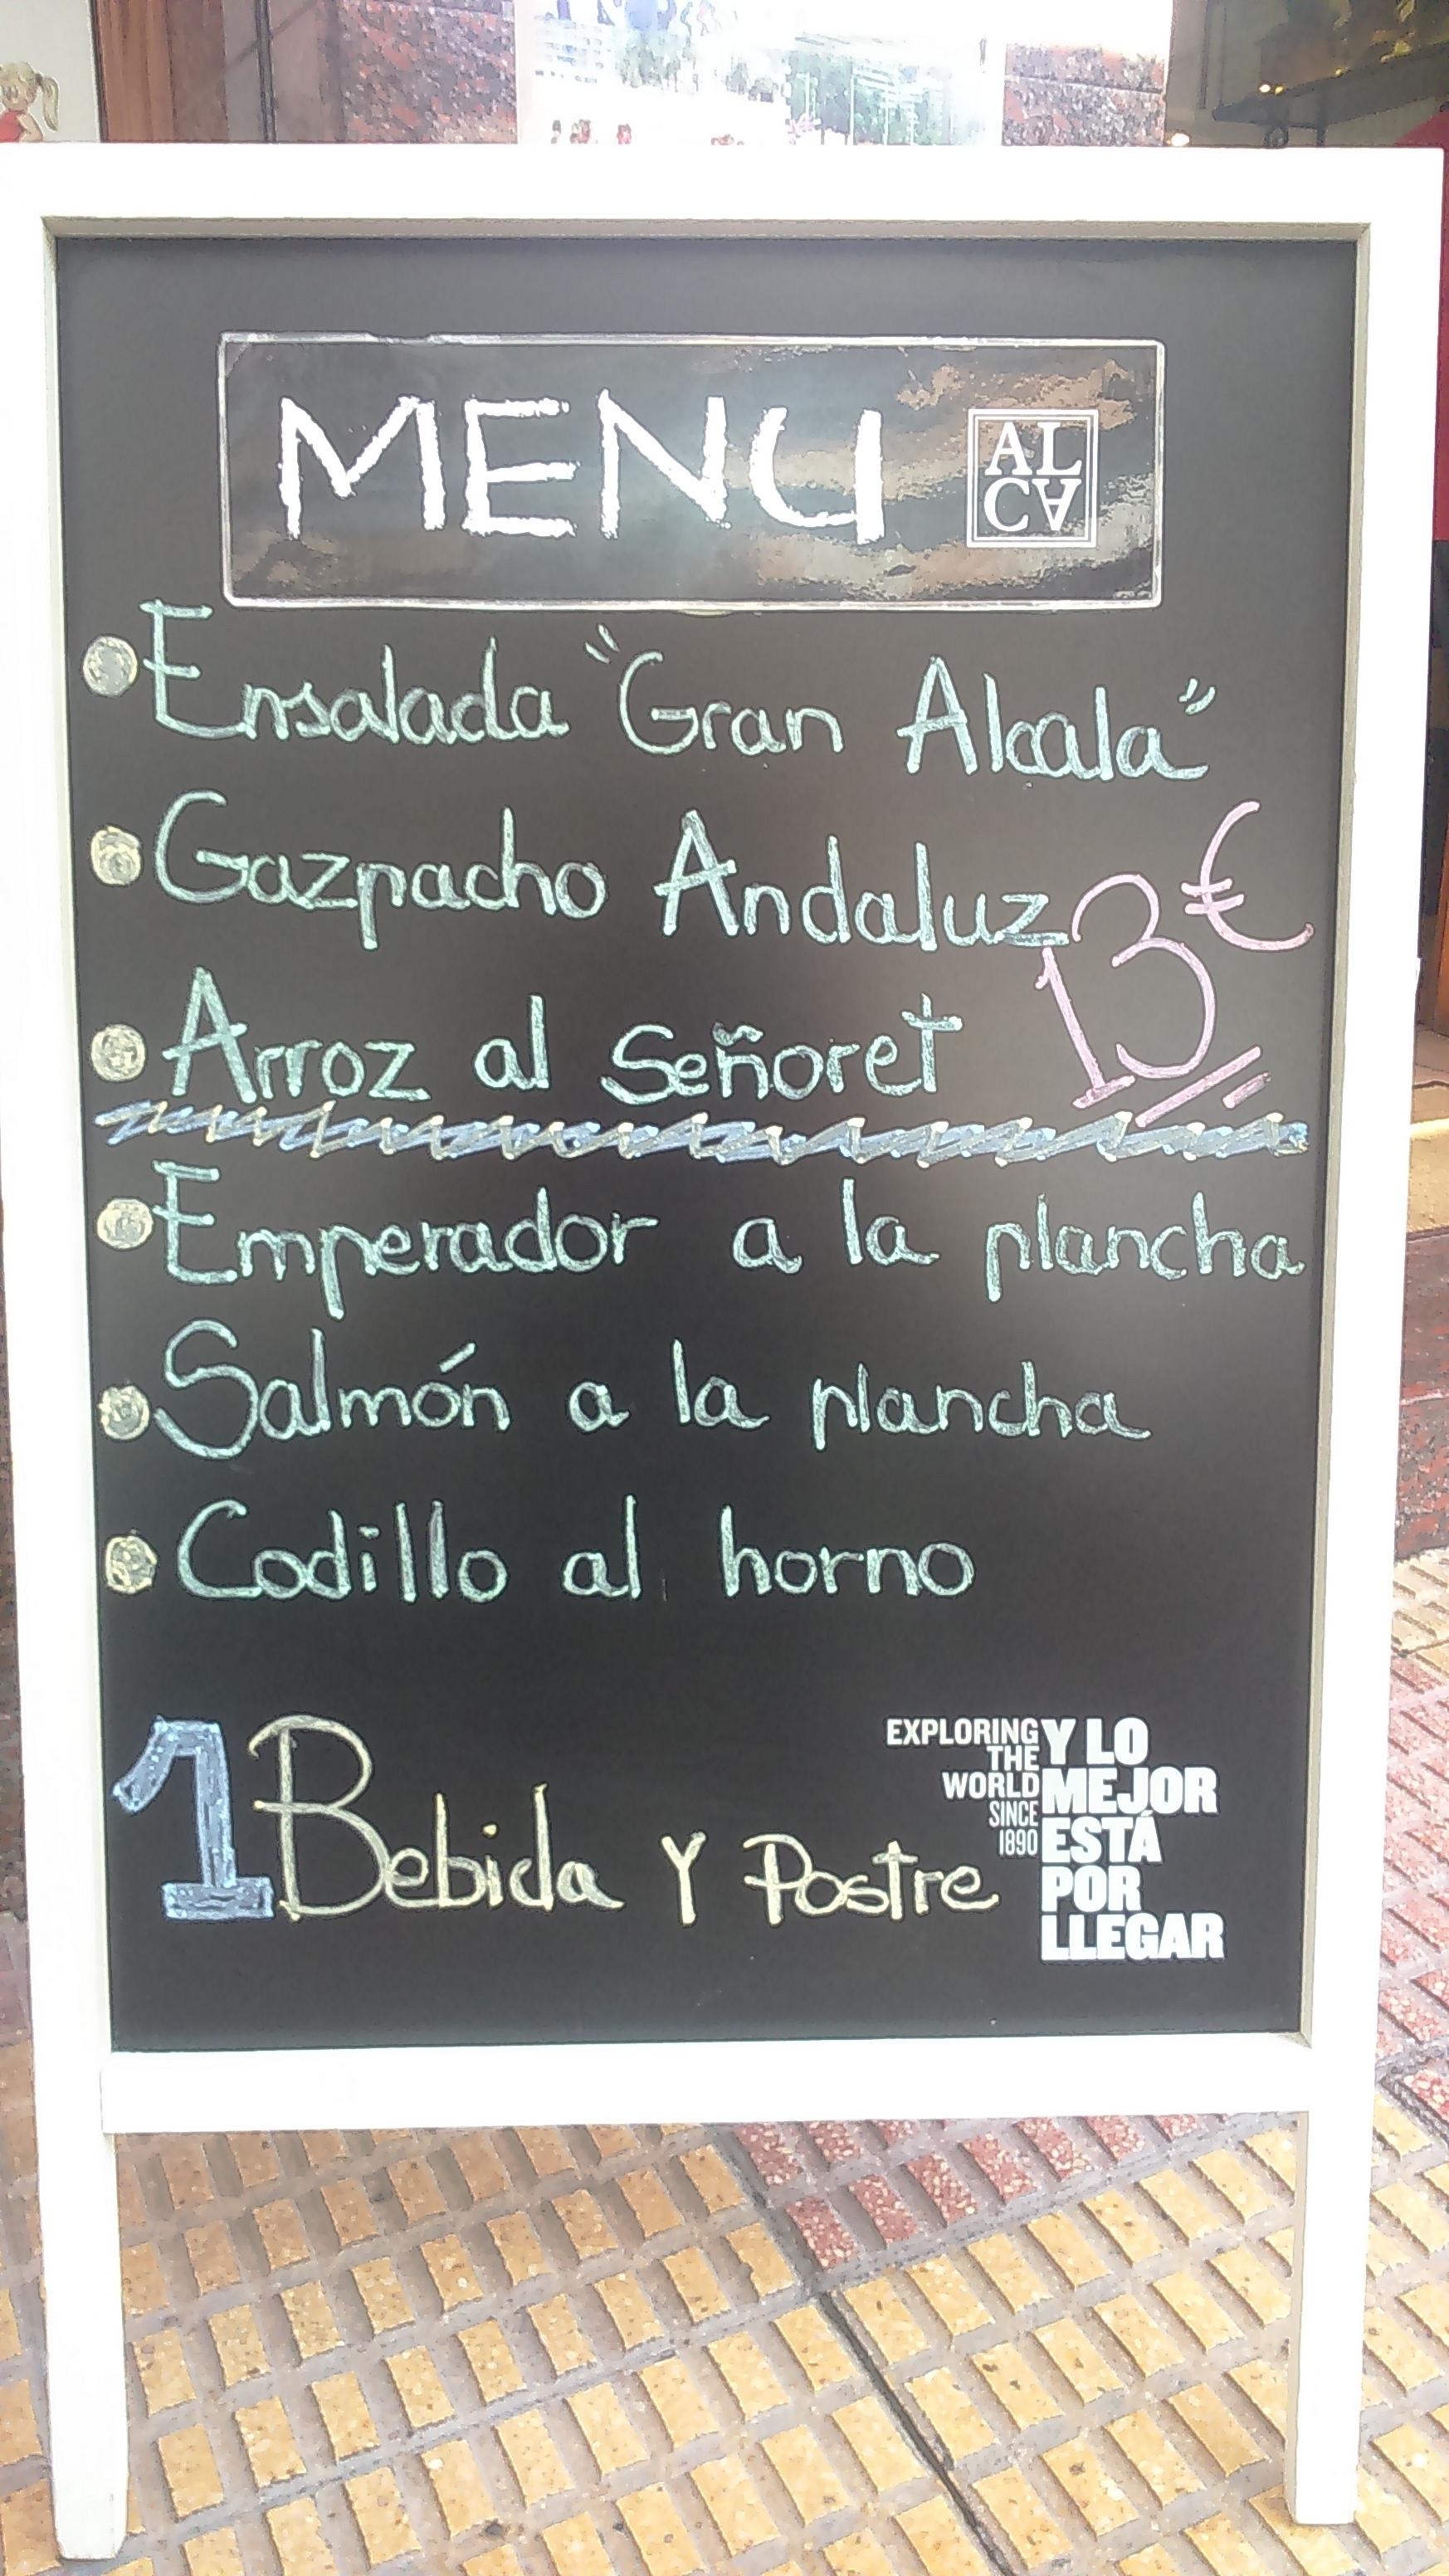 MENU
AL
CA
Ensalada "Gran Alcala"
Gazpacho Andaluz
13€
Arroz al Señoret
Emperador a la plancha
Salmón a la plancha
Codillo al horno
1 Bebida y Postre
EXPLORING
THE
WORLD
SINCE
1890
Y LO
MEJOR
ESTÁ
POR
LLEGAR